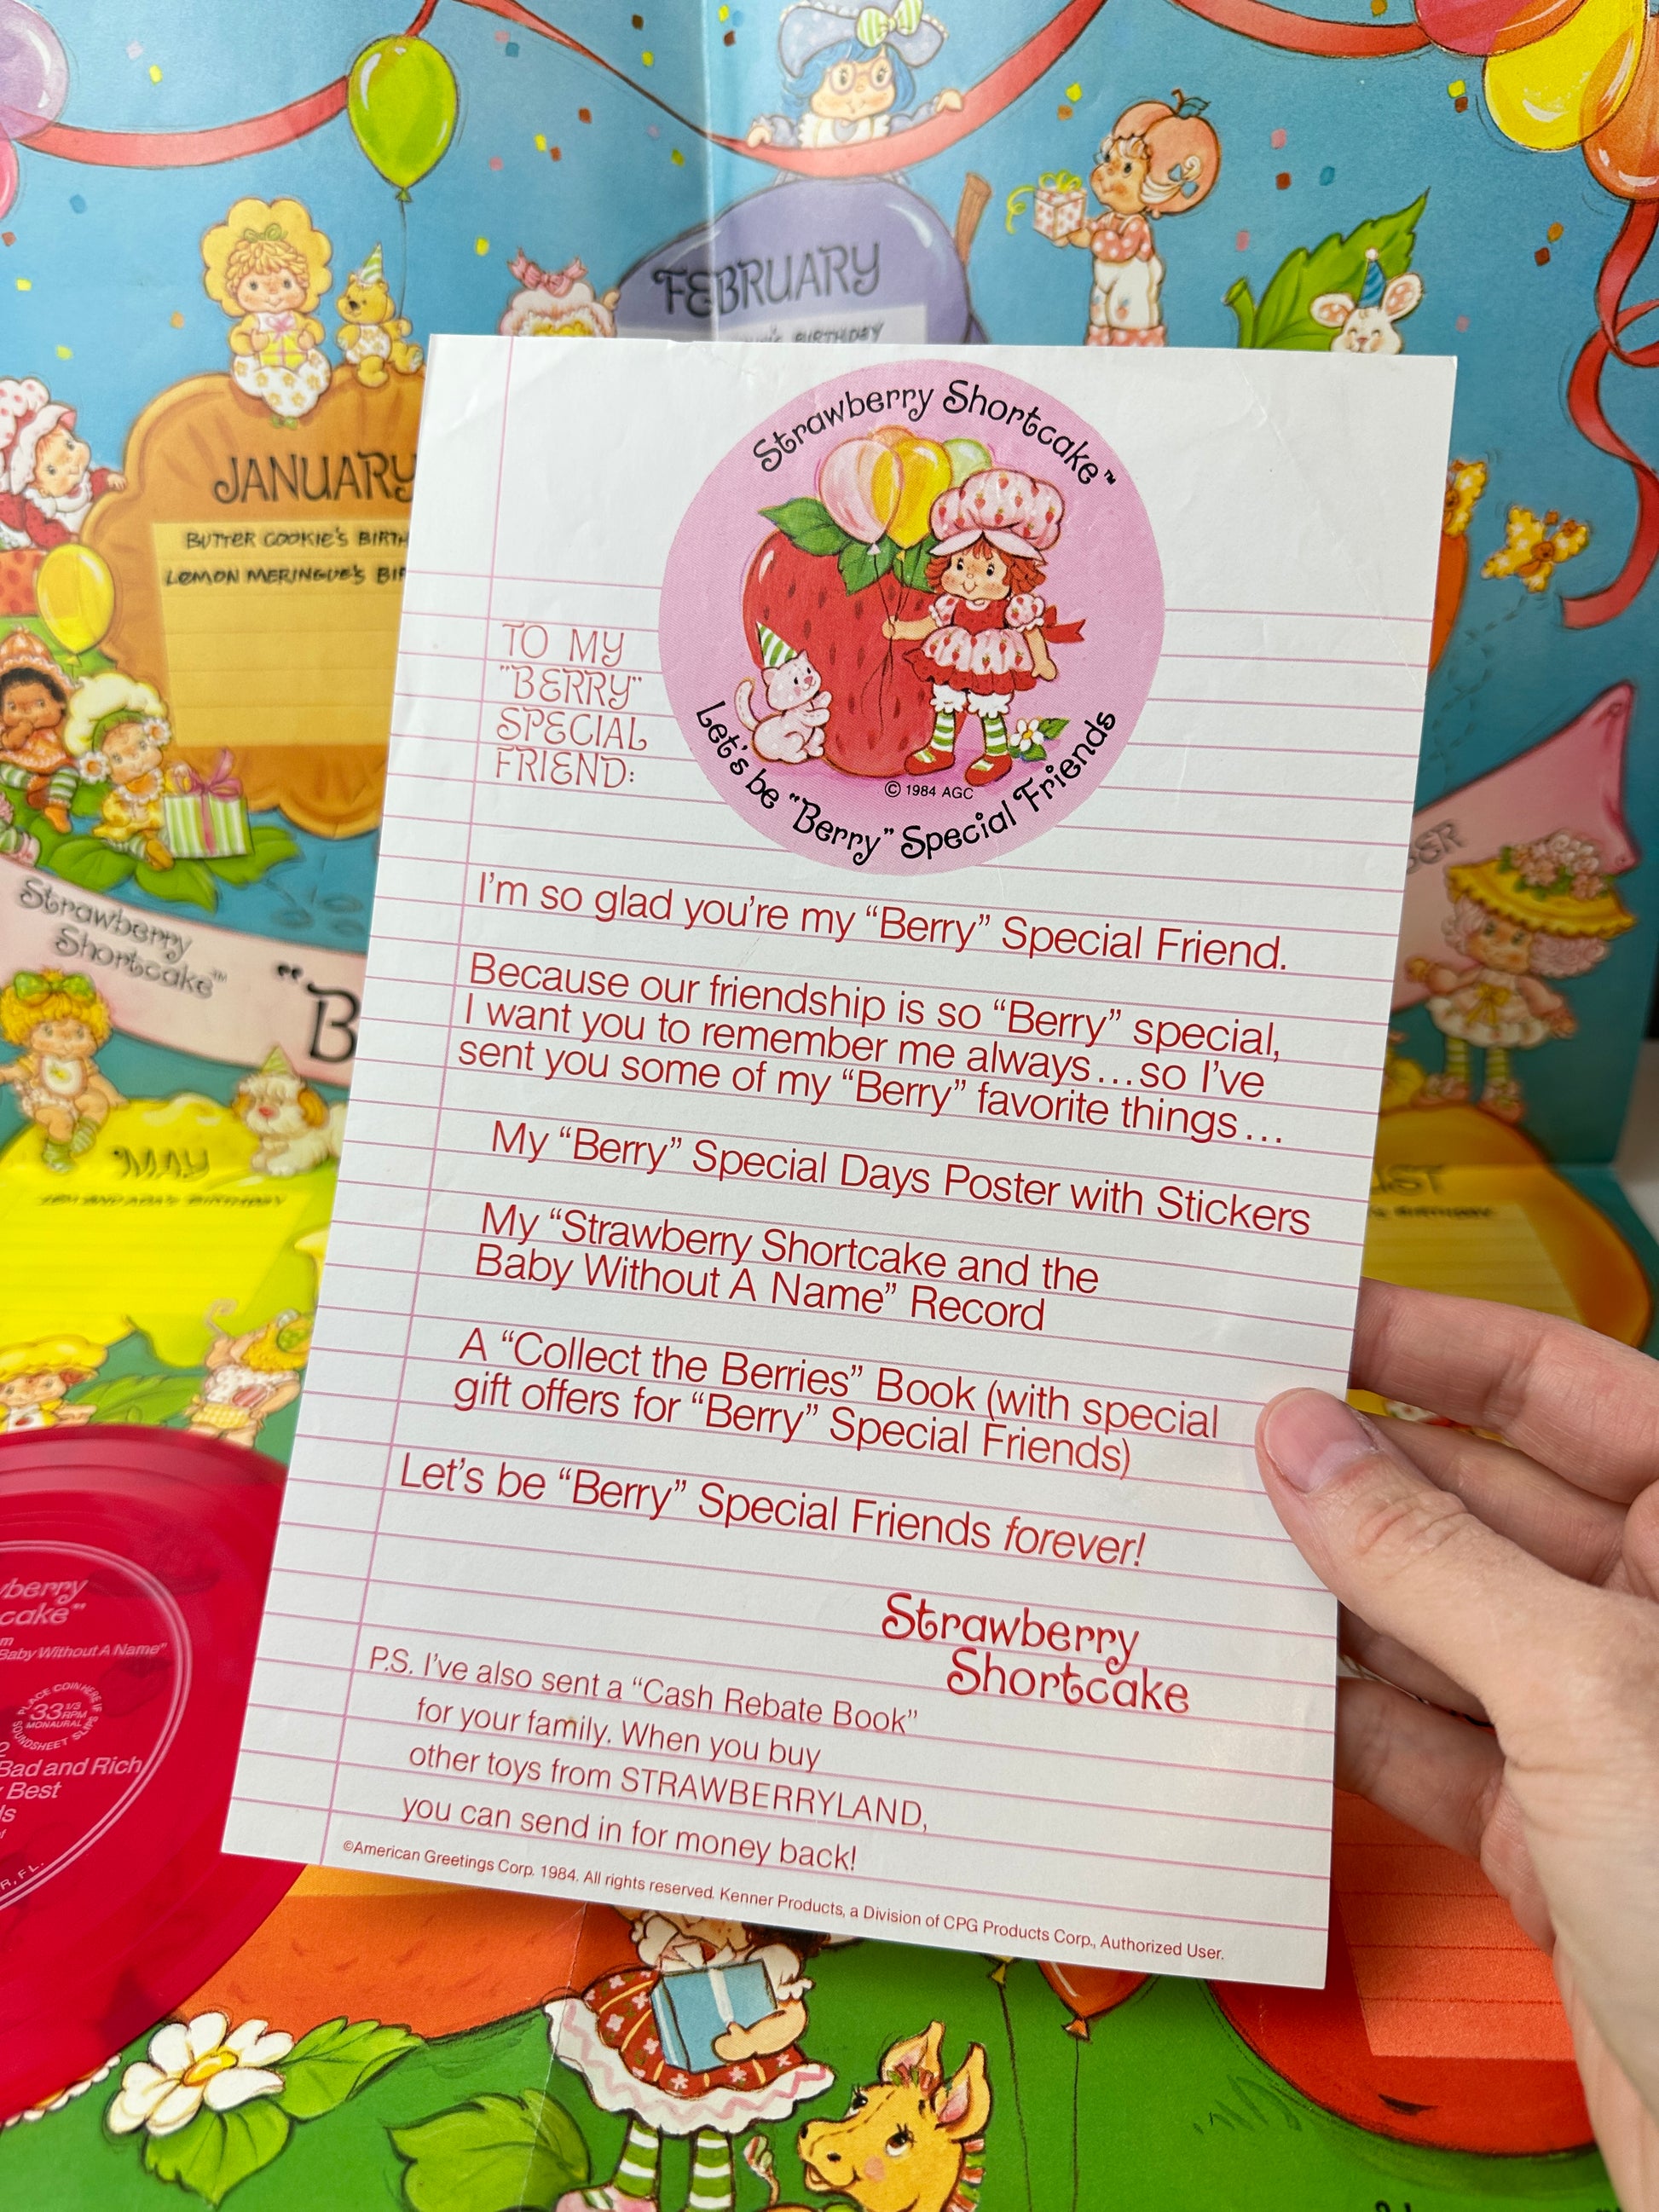 FEBRUARY
BIRTHDAY
JANUARY
BUTTER COOKIE'S BIRTH
LEMON MERINGUE'S BIR
Strawberry Shortcake™
© 1984 AGC
Let's be "Berry" Special Friends
TO MY
"BERRY"
SPECIAL
FRIEND:
I'm so glad you're my "Berry" Special Friend.
Because our friendship is so "Berry" special,
I want you to remember me always...so I've
sent you some of my "Berry" favorite things...
My "Berry" Special Days Poster with Stickers
My "Strawberry Shortcake and the
Baby Without A Name" Record
A "Collect the Berries" Book (with special
gift offers for "Berry" Special Friends)
Let's be "Berry" Special Friends forever!
Strawberry
Shortcake
P.S. I've also sent a "Cash Rebate Book"
for your family. When you buy
other toys from STRAWBERRYLAND,
you can send in for money back!
©American Greetings Corp. 1984. All rights reserved. Kenner Products, a Division of CPG Products Corp., Authorized User.
Strawberry
Shortcake™
"B
BER
MAY
BIRTHDAY
UST
BIRTHDAY
wberry
cake"
m
Baby Without A Name"
PLACE COIN HERE IF
33 1/3
RPM
MONAURAL
SOUNDSHEET SLIPS
Bad and Rich
Best
ls
R, FL.